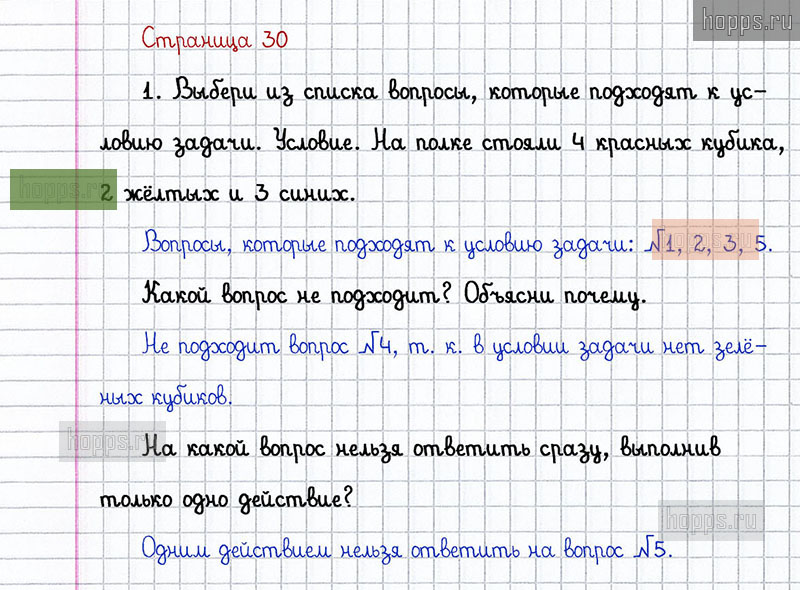 hopps.ru
Страница 30
1. Выбери из списка вопросы, которые подходят к ус-
ловию задачи. Условие. На полке стояли 4 красных кубика,
hopps.ru
2 жёлтых и 3 синих.
Вопросы, которые подходят к условию задачи: №1, 2, 3, 5.
hopps.ru
Какой вопрос не подходит? Объясни почему.
Не подходит вопрос №4, т. к. в условии задачи нет зелё-
ных кубиков.
hopps.ru
На какой вопрос нельзя ответить сразу, выполнив
только одно действие?
hopps.ru
Одним действием нельзя ответить на вопрос №5.